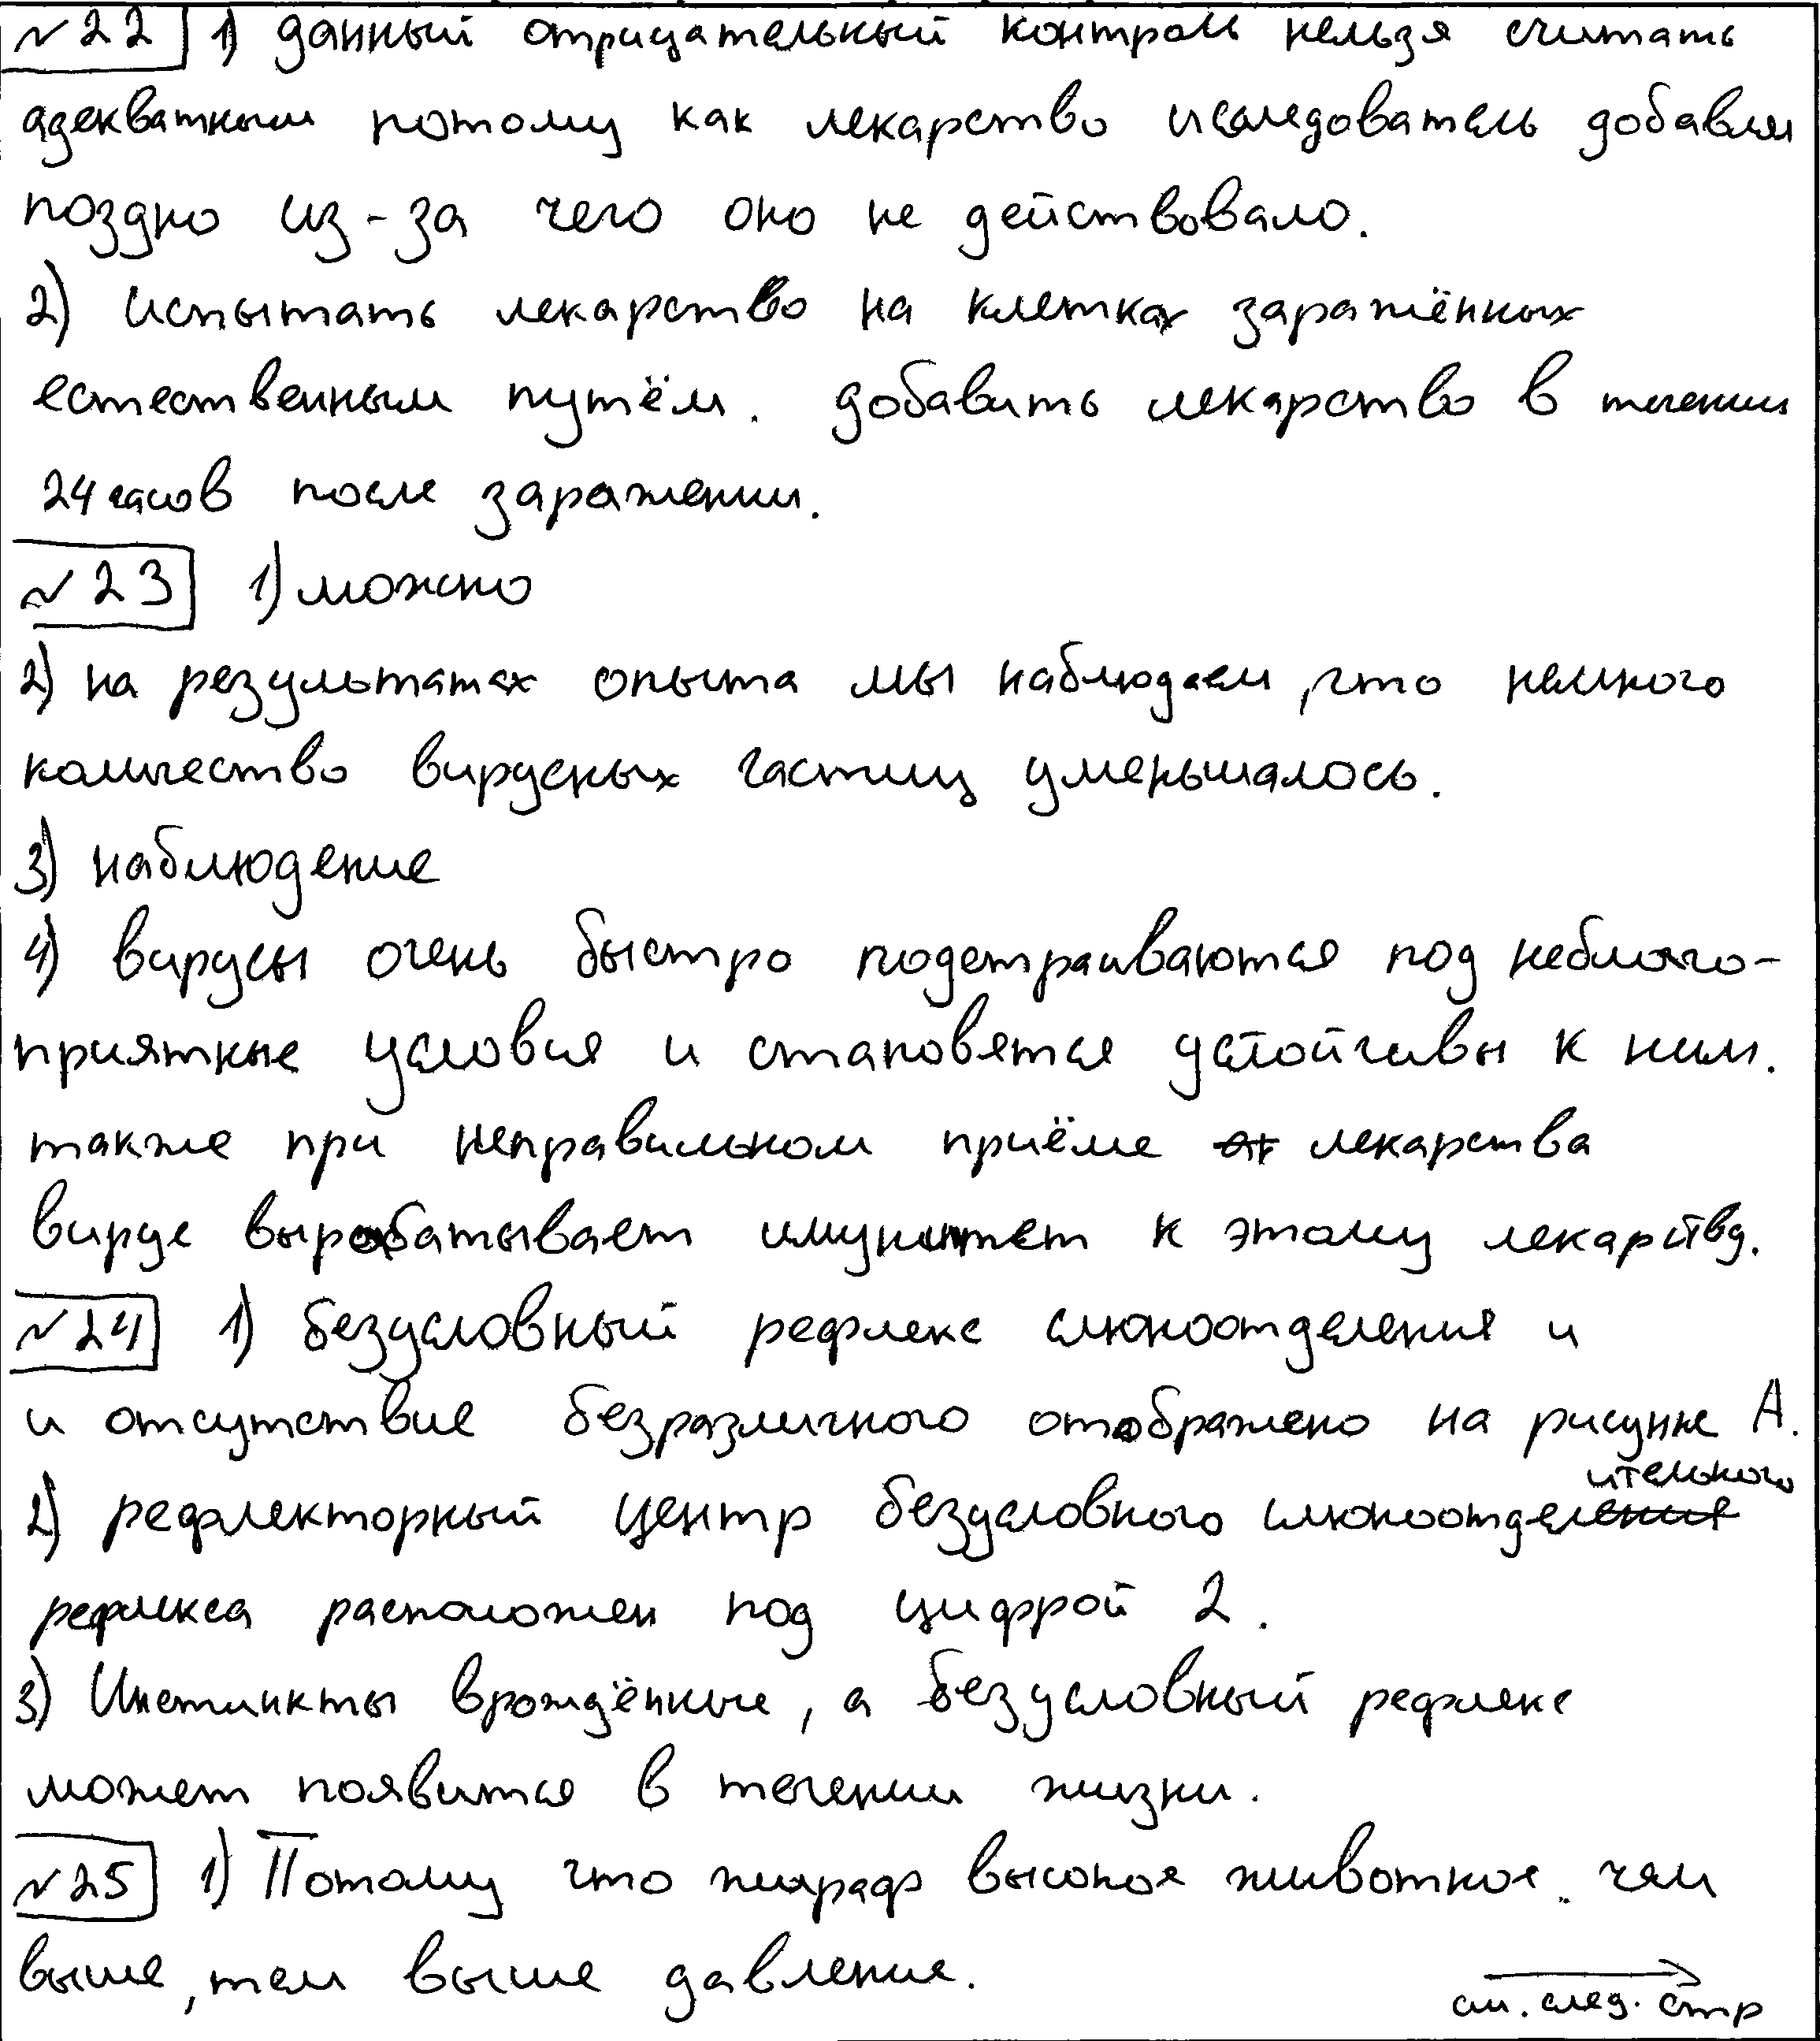 №22 1) данный отрицательный контроль нельзя считать
адекватным потому как лекарство исследователь добавлял
поздно из-за чего оно не действовало.
2) испытать лекарство на клетках заражённых
естественным путём. добавить лекарство в течении
24 часов после заражении.
№23 1) можно
2) на результатах опыта мы наблюдаем, что немного
количество вирусных частиц уменьшалось.
3) наблюдение
4) вирусы очень быстро подстраиваются под неблаго-
приятные условия и становятся устойчивы к ним.
также при неправильном приёме лекарства
вирус вырабатывает имунитет к этому лекарству.
№24 1) безусловный рефлекс слюноотделения и
и отсутствие безразличного отображено на рисунке А.
2) рефлекторный центр безусловного слюноотделительного
рефлекса расположен под цифрой 2.
3) Инстинкты врождённые, а безусловный рефлекс
может появится в течении жизни.
№25 1) Потому что жираф высокое животное. чем
выше, тем выше давление.
см. след. стр